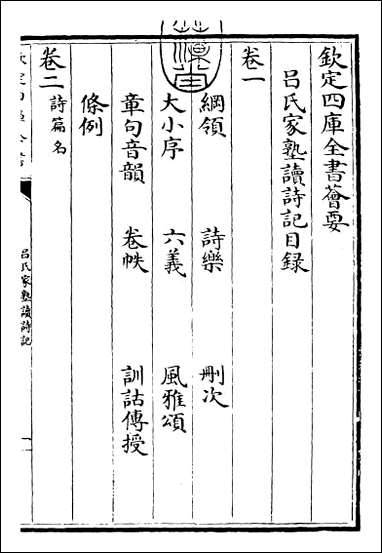 欽定四庫全書薈要
呂氏家塾讀詩記目録
卷一
綱領 詩樂 刪次
大小序 六義 風雅頌
章句音韻 卷帙 訓詁傳授
條例
卷二 詩篇名
呂氏家塾讀詩記
一